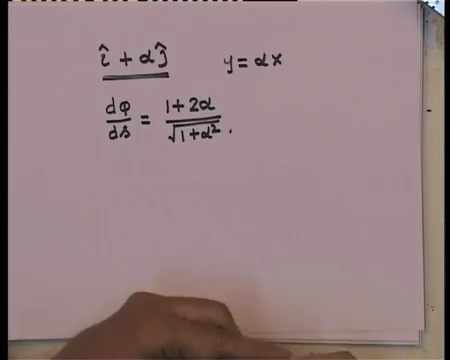 î + αĵ    y = αx
dφ/ds = (1 + 2α)/√(1 + α²).